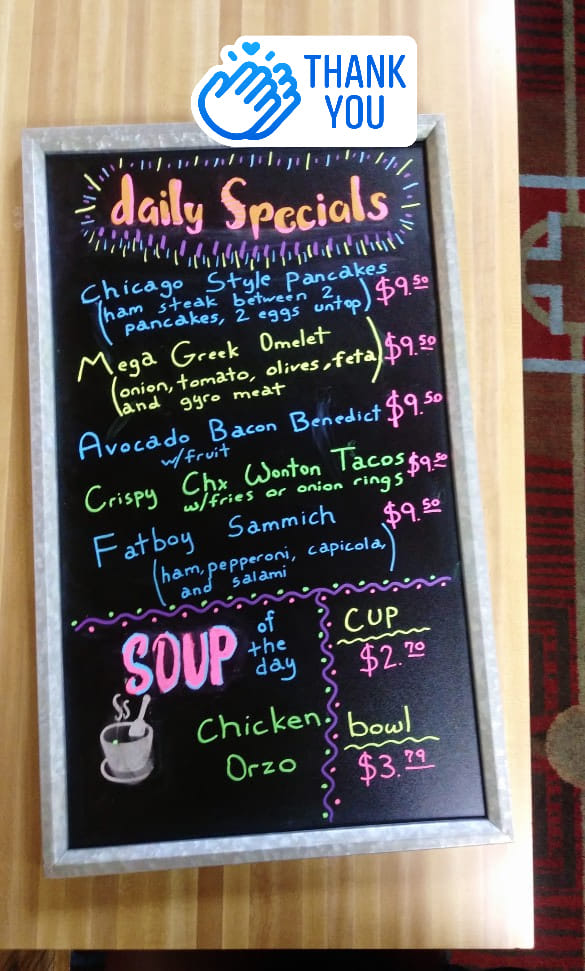 THANK
YOU
daily Specials
Chicago Style Pancakes
(ham steak between 2
pancakes, 2 eggs untop) $9.50
Mega Greek Omelet
(onion, tomato, olives, feta) $9.50
and gyro meat
Avocado Bacon Benedict $9.50
w/fruit
Crispy Chx Wonton Tacos $9.50
w/fries or onion rings
Fatboy Sammich $9.50
(ham, pepperoni, capicola,)
and salami
SOUP of
the
day
Chicken
Orzo
CUP
$2.70
bowl
$3.79